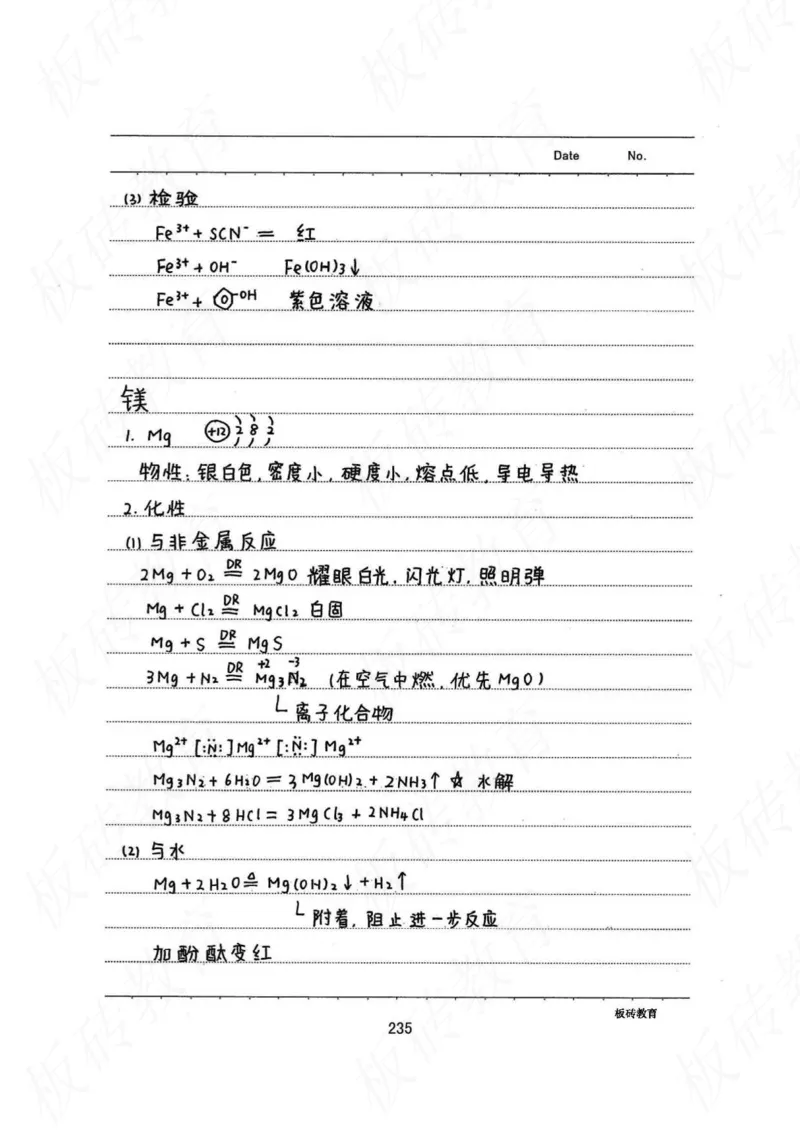 Date No.
(3) 检验
Fe³⁺ + SCN⁻ = 红
Fe³⁺ + OH⁻ Fe(OH)₃↓
Fe³⁺ + -OH 紫色溶液
镁
1. Mg +12 2 8 2
物性:银白色,密度小,硬度小,熔点低,导电导热
2.化性
(1) 与非金属反应
2Mg + O₂ DR= 2MgO 耀眼白光,闪光灯,照明弹
Mg + Cl₂ DR= MgCl₂ 白固
Mg + S DR= MgS
+2 -3
3Mg + N₂ DR= Mg₃N₂ (在空气中燃,优先MgO)
离子化合物
Mg²⁺ [:N̈:] Mg²⁺ [:N̈:] Mg²⁺
Mg₃N₂ + 6H₂O = 3Mg(OH)₂ + 2NH₃↑ ☆ 水解
Mg₃N₂ + 8HCl = 3MgCl₃ + 2NH₄Cl
(2) 与水
Mg + 2H₂O △= Mg(OH)₂↓ + H₂↑
附着,阻止进一步反应
加酚酞变红
板砖教育
235